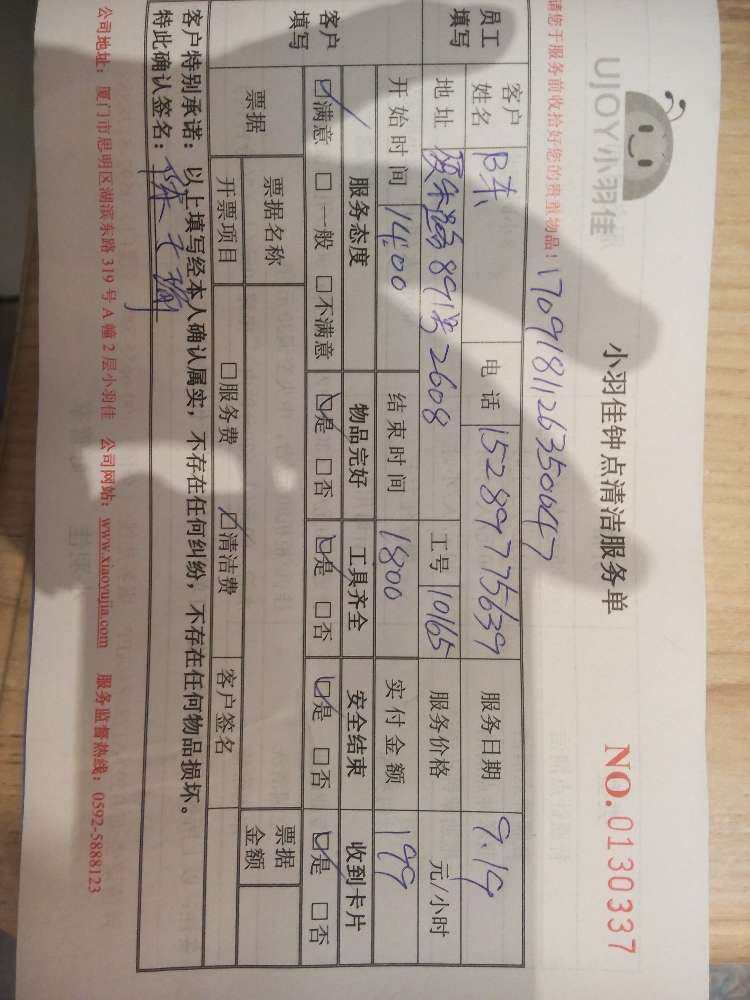 UJOY小羽佳
小羽佳钟点清洁服务单
NO.0130337
请您于服务前收拾好您的贵重物品！
1709181126350047
员工填写
客户姓名 电话 15289775639 服务日期 9.19
地址 89号2608 工号 10165 服务价格 元/小时
开始时间 14:00 结束时间 1800 实付金额 199
客户填写
服务态度 物品完好 工具齐全 安全结束 收到卡片
☑满意 □一般 □不满意 ☑是 □否 ☑是 □否 ☑是 □否 ☑是 □否
票据 票据名称 票据金额
开票项目 □服务费 ☑清洁费 客户签名
客户特别承诺：以上填写经本人确认属实，不存在任何纠纷，不存在任何物品损坏。
特此确认签名：
公司地址：厦门市思明区湖滨东路319号A幢2层小羽佳 公司网站：www.xiaoyujia.com 服务监督热线：0592-5888123